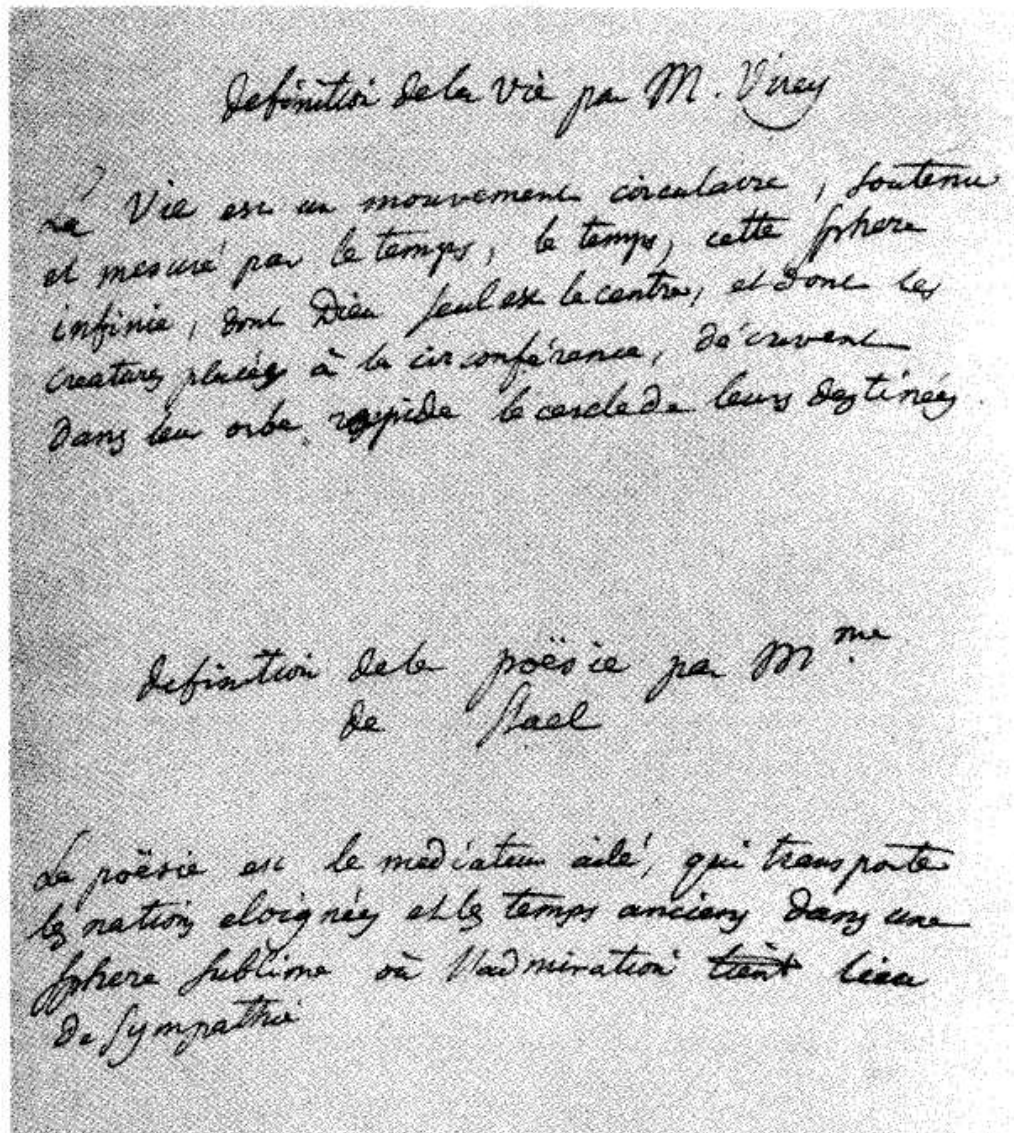 definition de la vie par M. Virey
La Vie est un mouvement circulaire, soutenu
et mesuré par le temps, le temps, cette sphere
infinie, dont Dieu seul est le centre, et dont les
creatures placées à la circonférence, décrivent
dans leur orbe rapide le cercle de leurs destinées.
definition de la poësie par Mme
de Stael
La poësie est le mediateur ailé, qui transporte
les nations eloignées et les temps anciens dans une
sphere sublime où l'admiration tient lieu
de sympathie